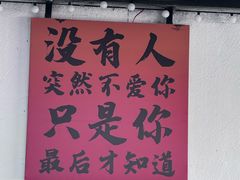 没有人
突然不爱你
只是你
最后才知道